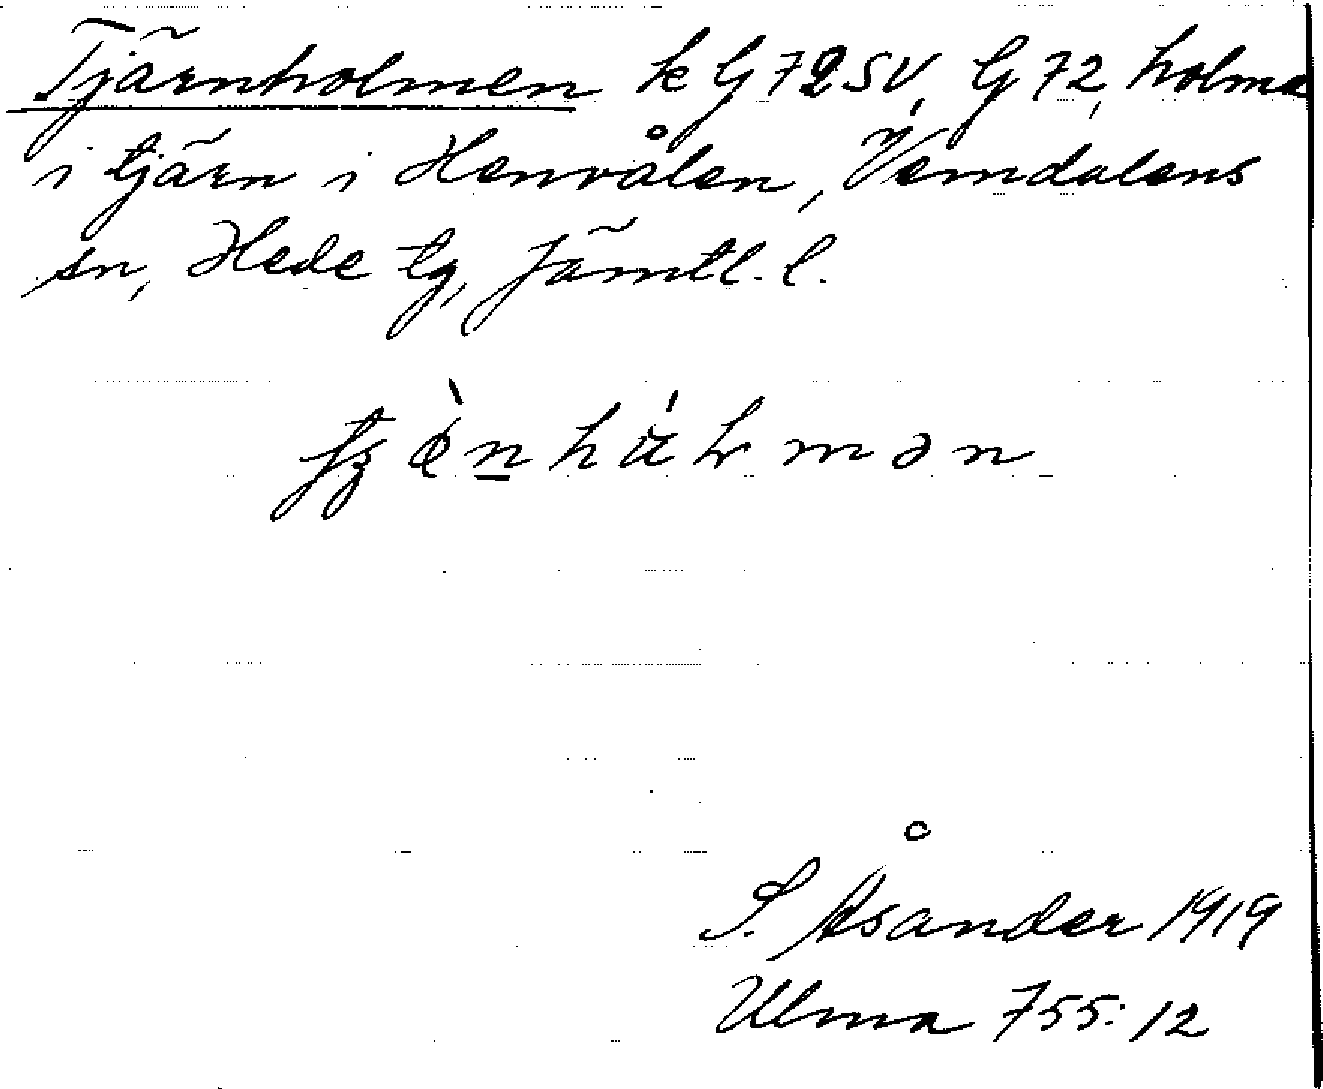 Tjärnholmen k G 72 SV, G 72, holma
i tjärn i Henvålen, Vemdalens
sn, Hede tg, Jämtl. l.
S. Åsander 1919
Ulma 755:12